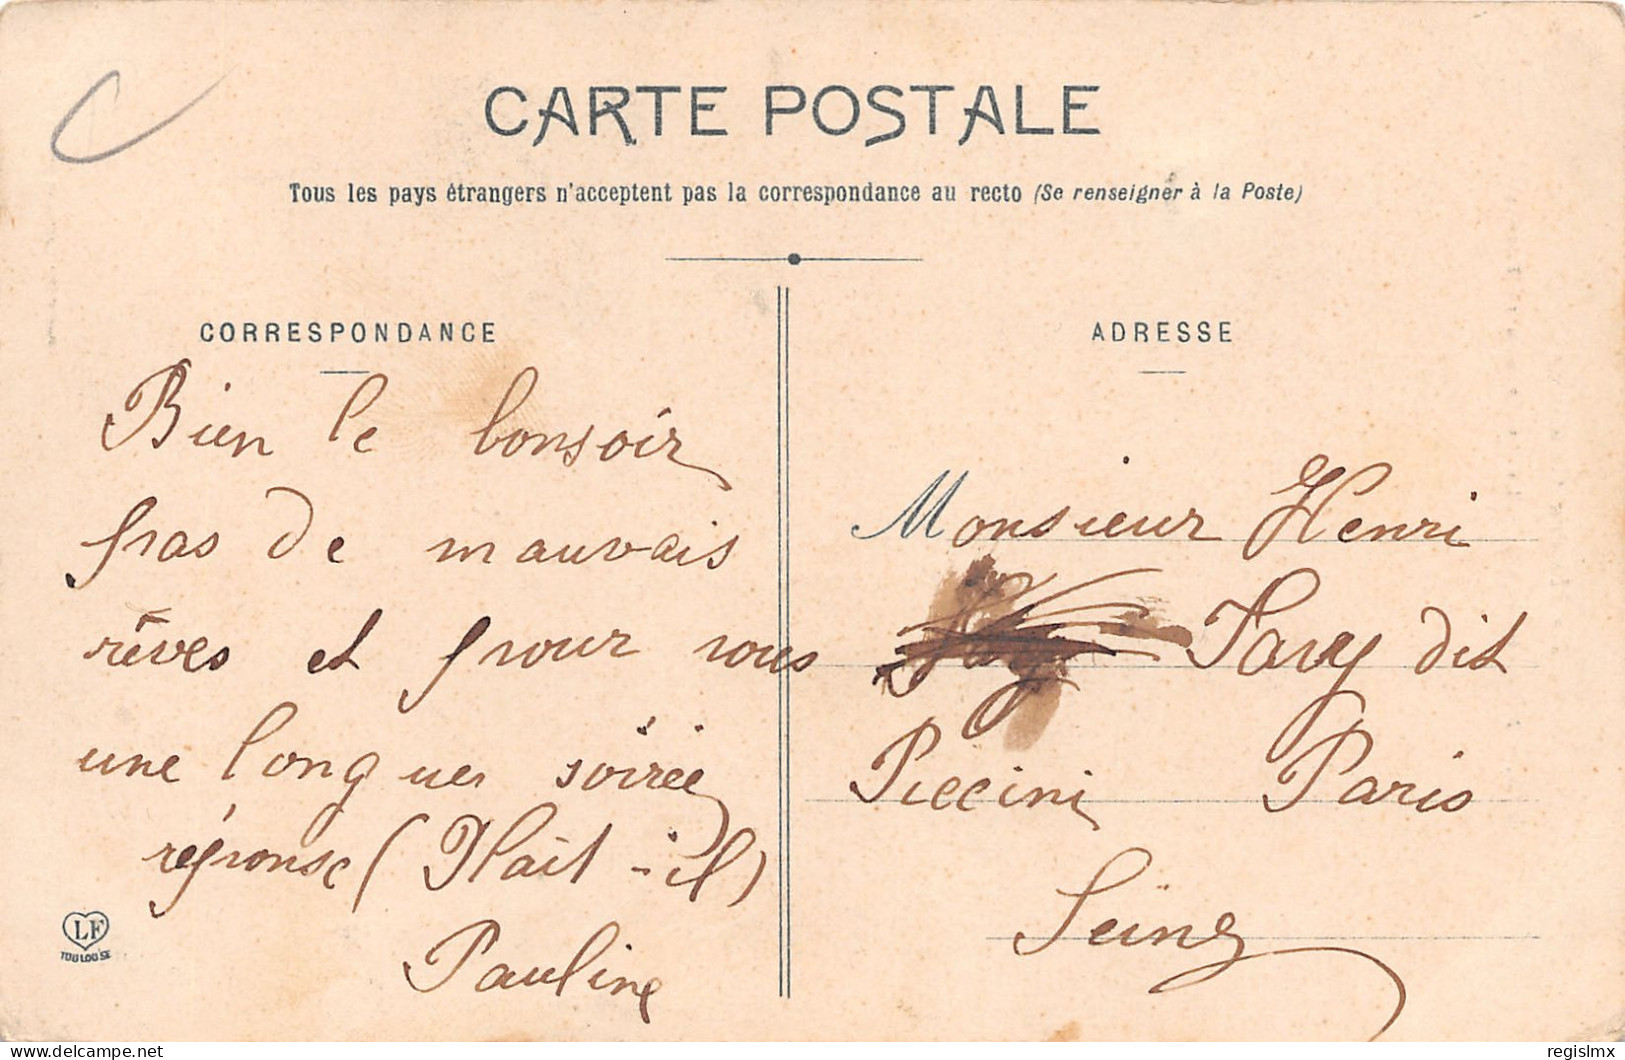 CARTE POSTALE
Tous les pays étrangers n'acceptent pas la correspondance au recto (Se renseigner à la Poste)
CORRESPONDANCE
Bien le bonsoir
pas de mauvais
rêves et pour vous
une longues soirée
réponse (Plait-il)
Pauline
LF
TOULOUSE
ADRESSE
Monsieur Henri
Davy dit
Piccini Paris
Seine
regislmx